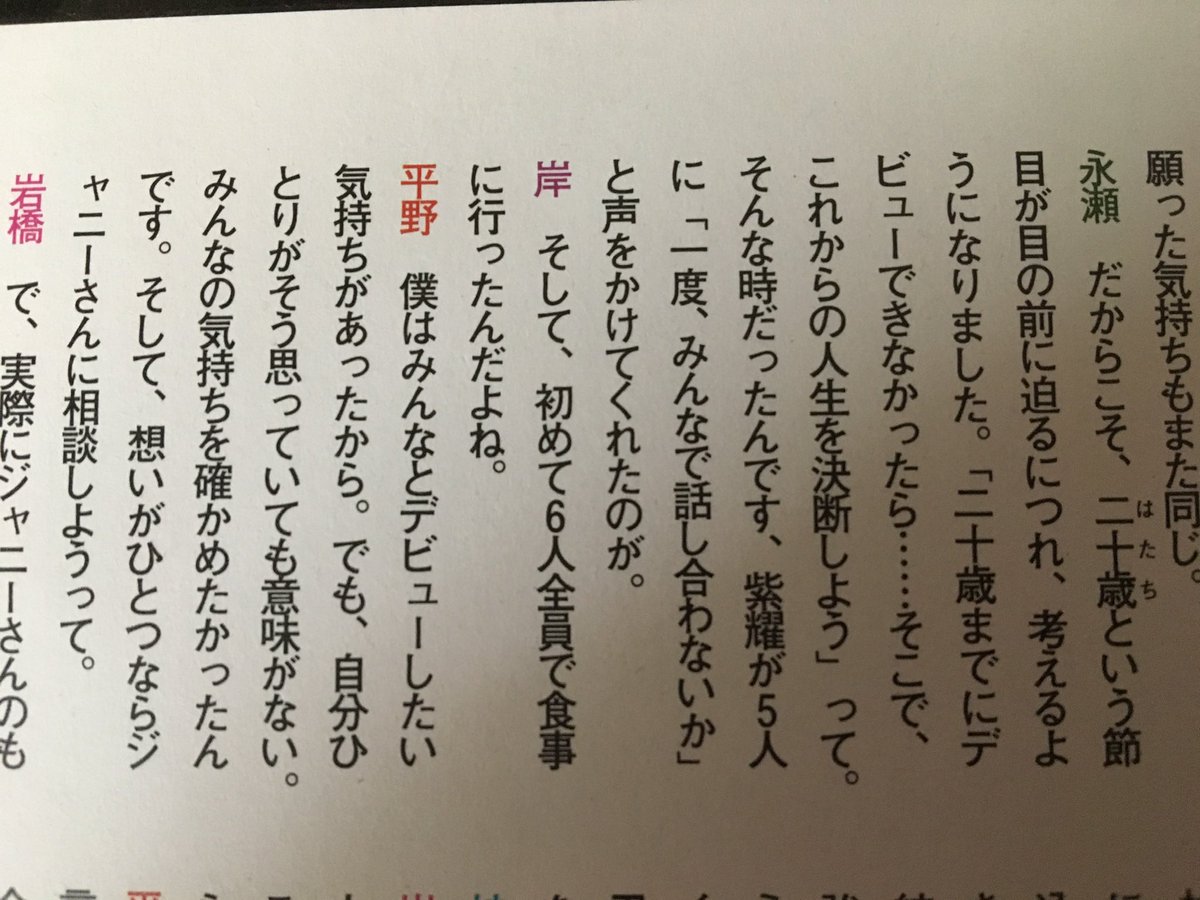 願った気持ちもまた同じ。
永瀬 だからこそ、二十歳という節
はたち
目が目の前に迫るにつれ、考えるよ
うになりました。「二十歳までにデ
ビューできなかったら……そこで、
これからの人生を決断しよう」って。
そんな時だったんです、紫耀が5人
に「一度、みんなで話し合わないか」
と声をかけてくれたのが。
岸 そして、初めて6人全員で食事
に行ったんだよね。
平野 僕はみんなとデビューしたい
気持ちがあったから。でも、自分ひ
とりがそう思っていても意味がない。
みんなの気持ちを確かめたかったん
です。そして、想いがひとつならジ
ャニーさんに相談しようって。
岩橋 で、実際にジャニーさんのも